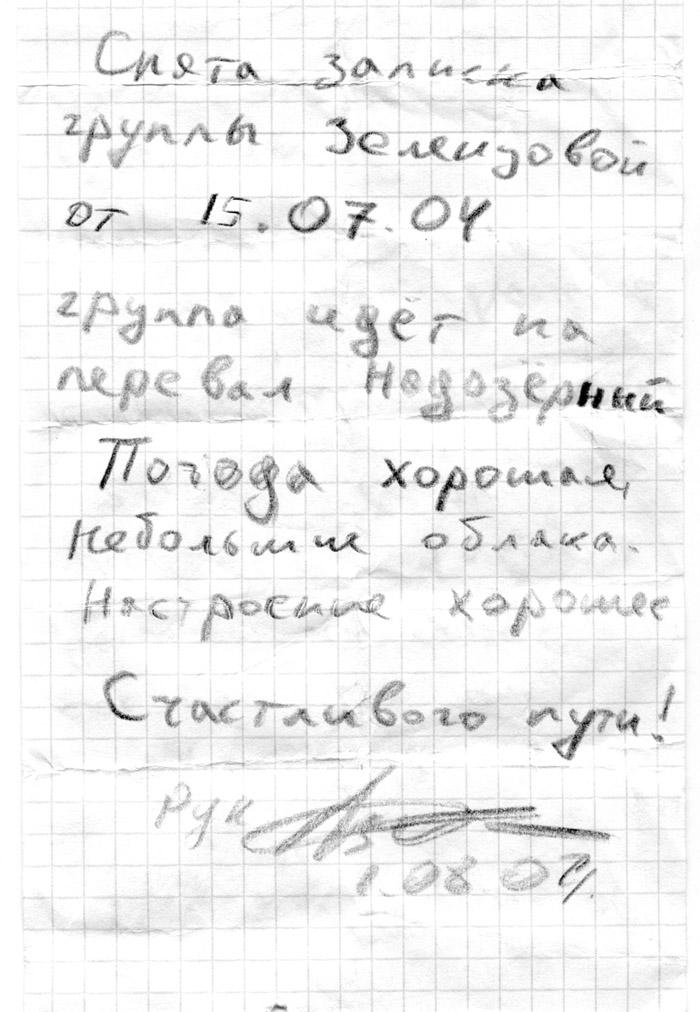 Снята записка
группы Зеленцовой
от 15.07.04
группа идёт на
перевал Надозёрный
Погода хорошая,
небольшие облака.
Настроение хорошее
Счастливого пути!
Рук
1.08.04.